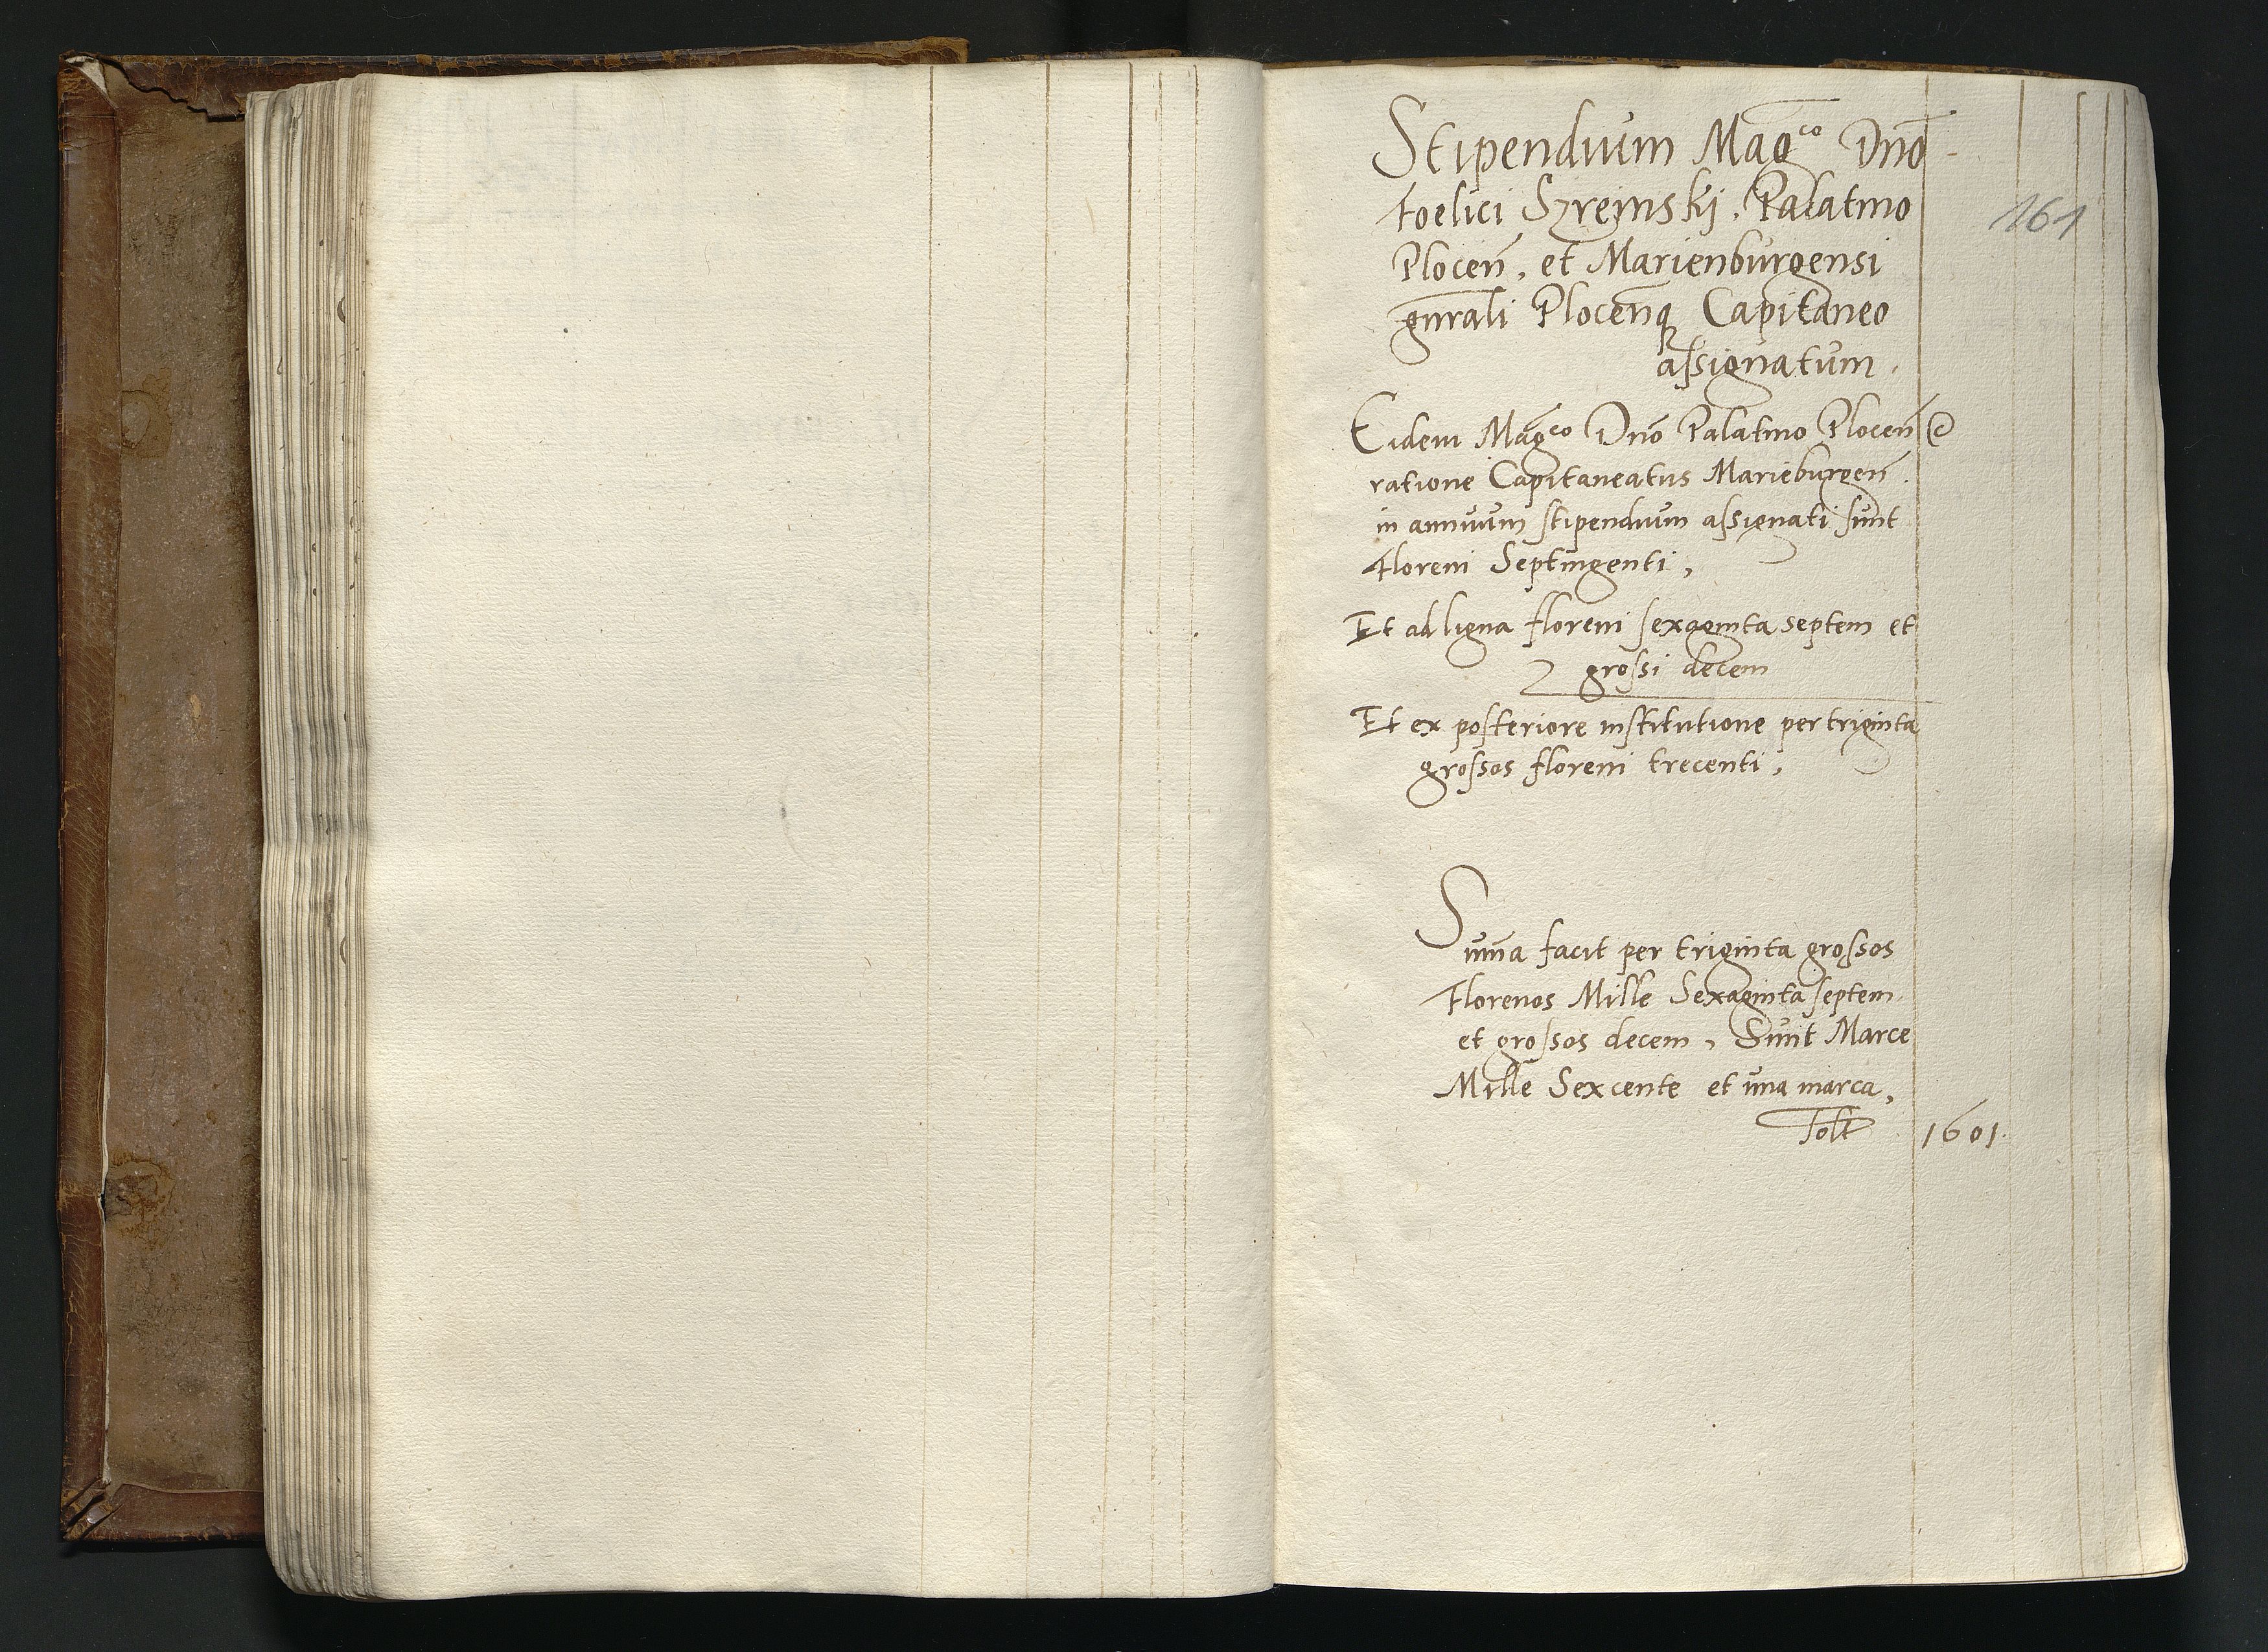 Stipendium Mag^co Dno
Foelici Szreinskj. Palatino
Plocen̄, et Marienburgensi
gnrali Plocenq̄ Capitaneo
aſsignatum.
161
Eidem Mag^co Dno Palatino Plocen̄
ratione Capitaneatus Marieburgen̄.
in annuum ſtipendium aſsignati ſunt
Floreni Septingenti,
Et ad ligna floreni ſexaginta septem et
groſsi decem
Et ex poſteriore inſtitutione per triginta
groſsos floreni trecenti,
Suma facit per triginta groſsos
Florenos Mille Sexaginta ſeptem
et groſsos decem, Sunt Marce
Mille Sexcente et una marca,
1601.